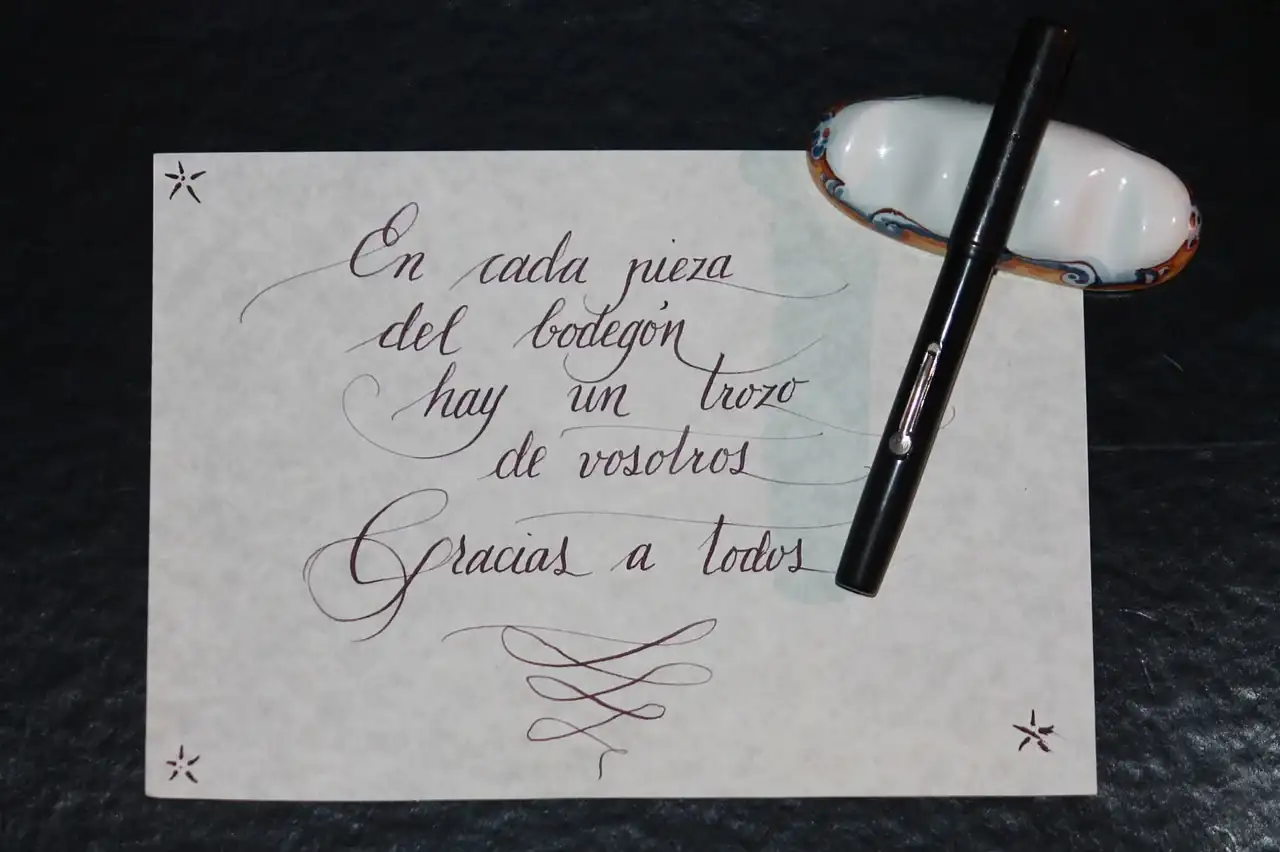 En cada pieza
del bodegón
hay un trozo
de vosotros
Gracias a todos